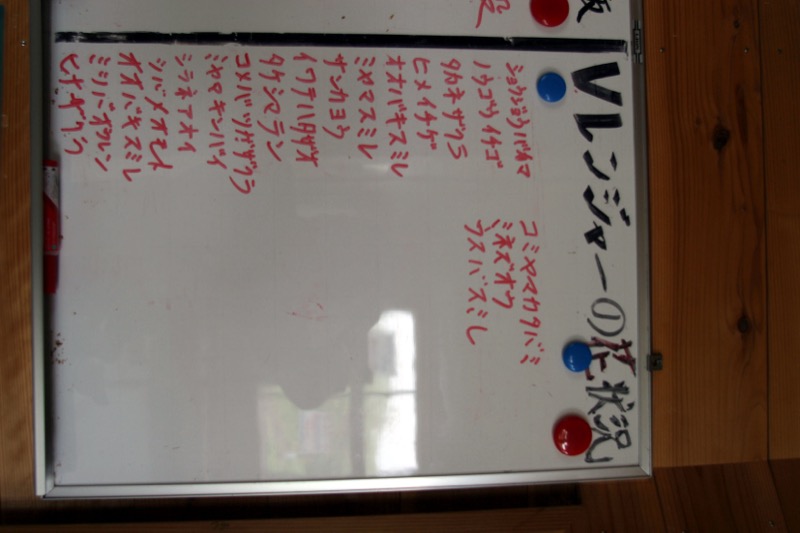 Vレンジャーの花状況
ショウジョウバカマ
ノウゴウイチゴ
タカネザクラ
ヒメイチゲ
オオバキスミレ
ミヤマスミレ
サンカヨウ
イワテハタザオ
タケシマラン
コメバツガザクラ
ミヤマキンバイ
シラネアオイ
ツバメオモト
オオバキスミレ
ミツバオウレン
ヒナザクラ
コミヤマカタバミ
ミネズオウ
ウスバスミレ